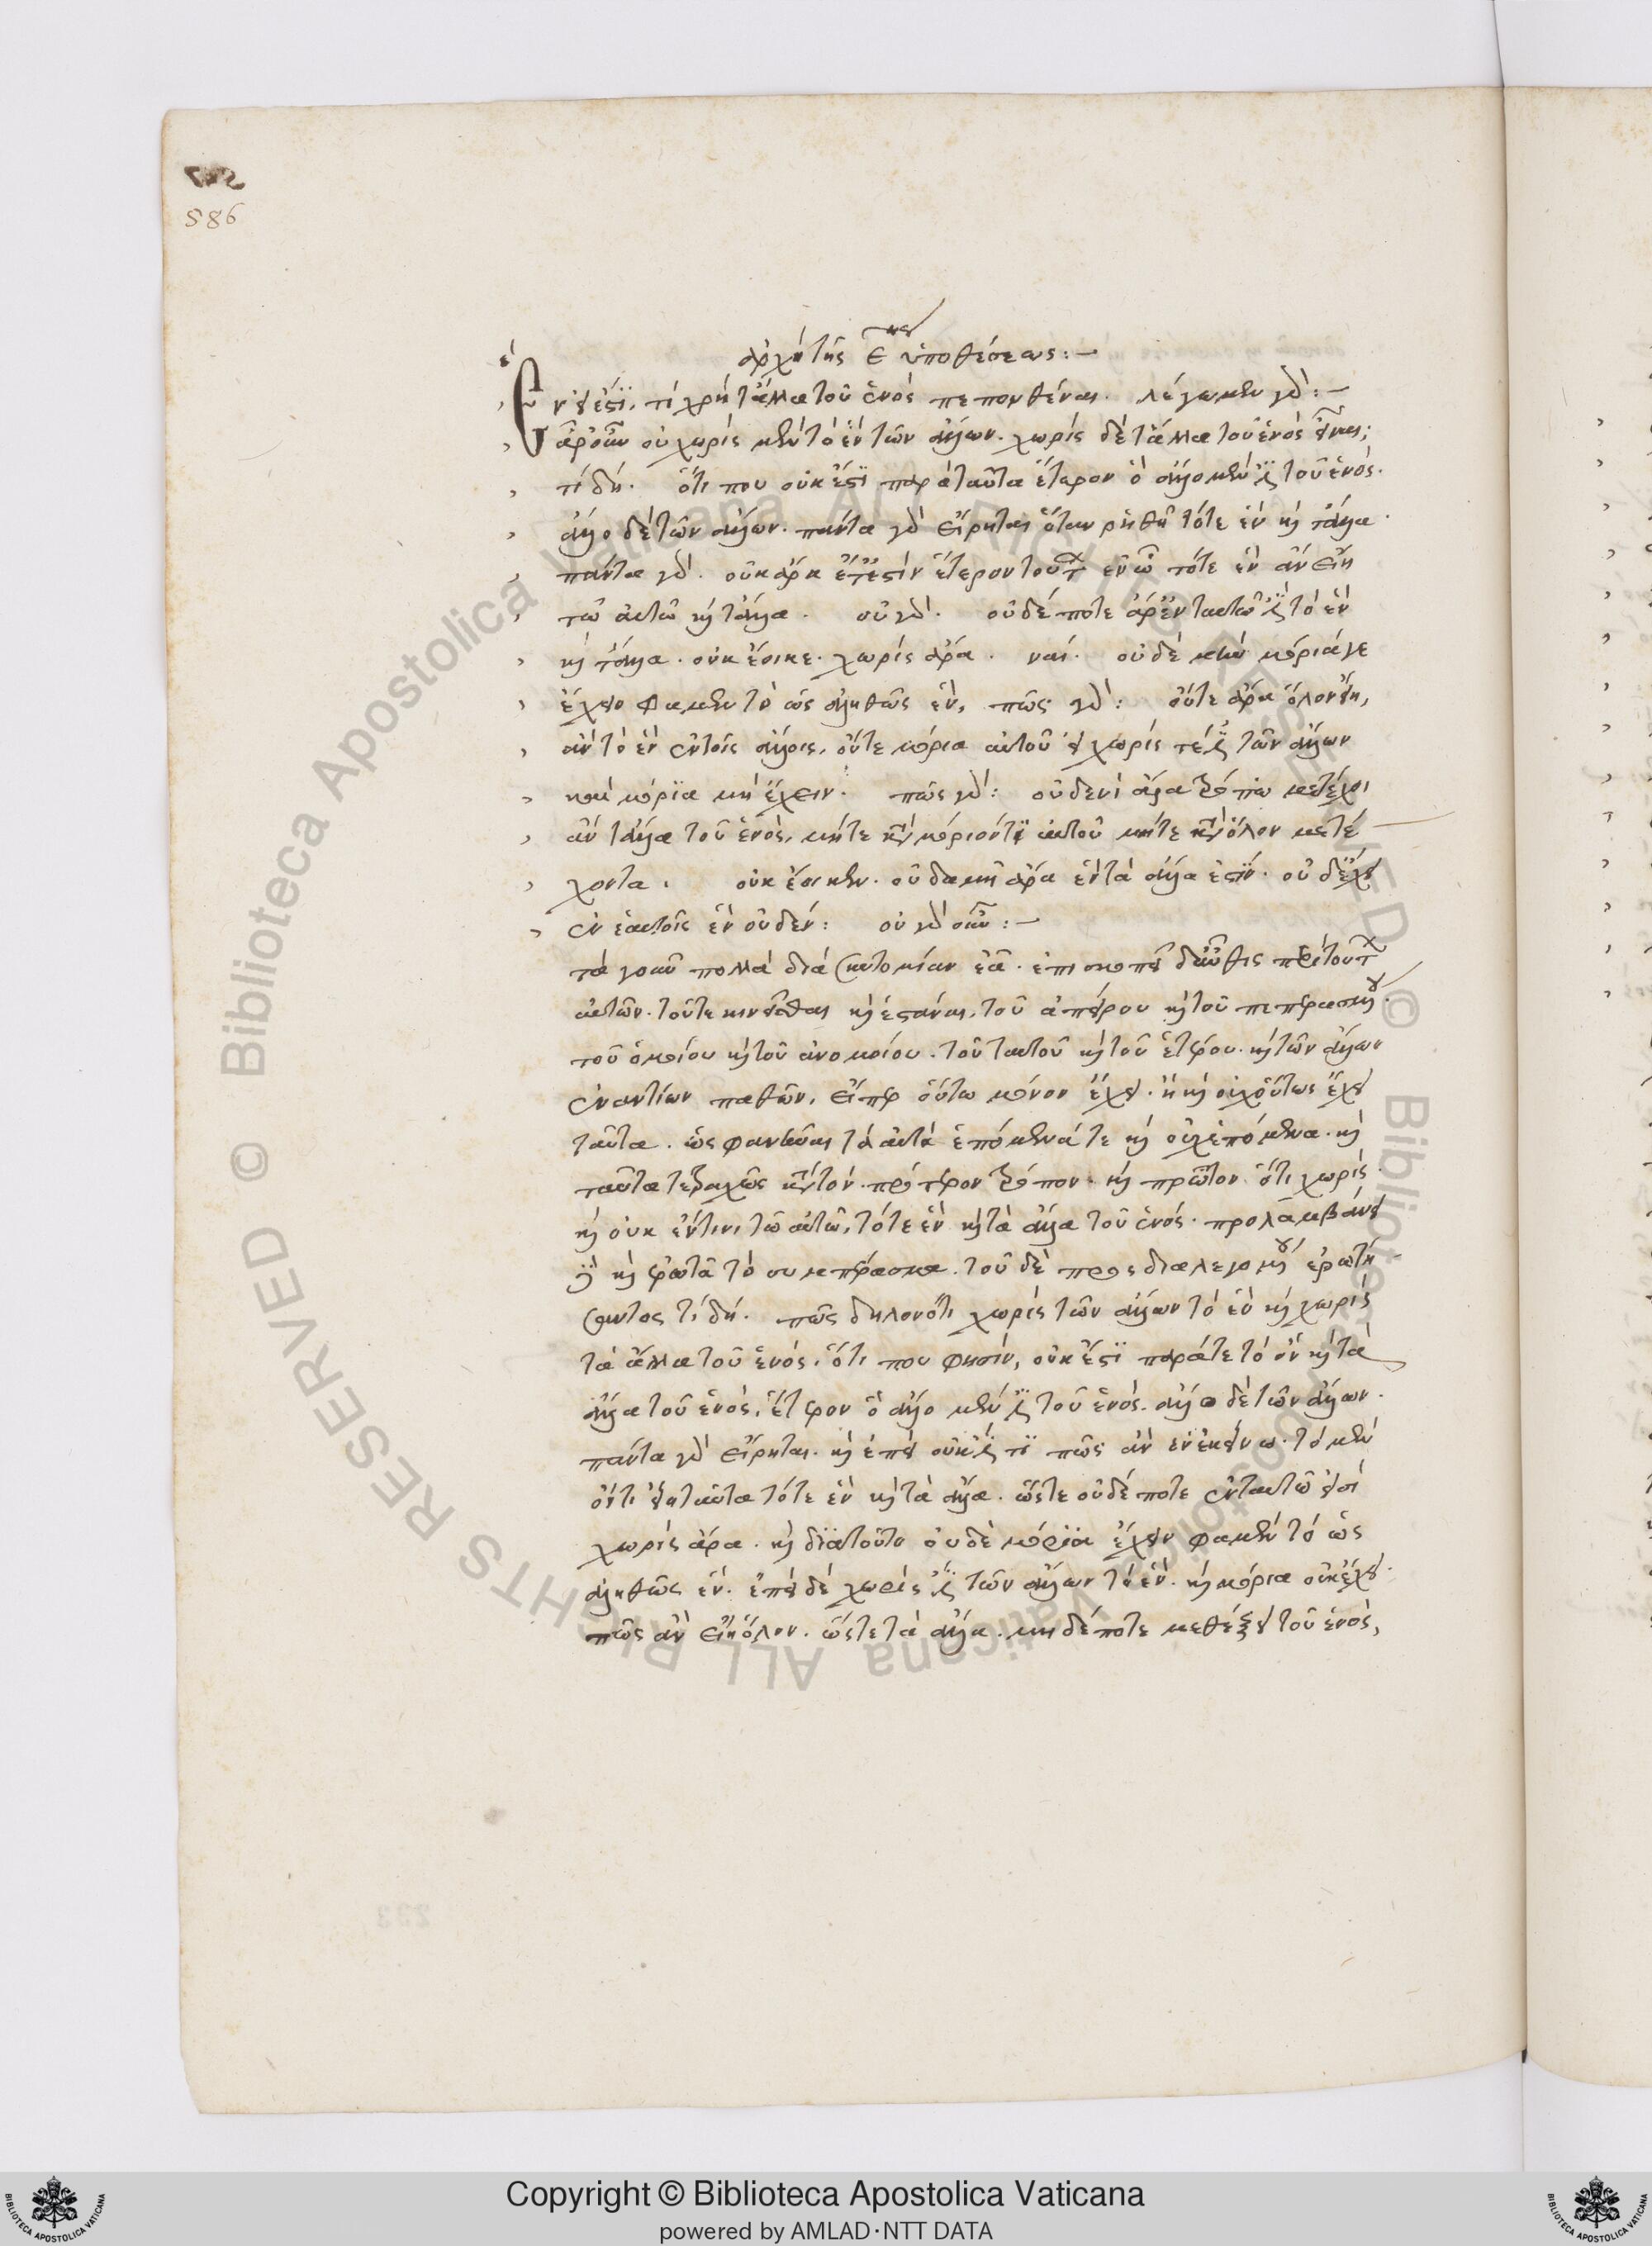 586
ἀρχὴ τῆς ε^ης ὑποθέσεως :—
ἓν εἰ ἔστι, τί χρὴ τἄλλα τοῦ ἑνὸς πεπονθέναι. λέγωμεν γάρ :—
ἆρ' οὖν οὐ χωρὶς μὲν τὸ ἓν τῶν ἄλλων. χωρὶς δὲ τἄλλα τοῦ ἑνὸς εἶναι;
τί δή. ὅτι που οὐκ ἔστι παρὰ ταῦτα ἕτερον ὃ ἄλλο μέν ἐστι τοῦ ἑνός.
ἄλλο δὲ τῶν ἄλλων. πάντα γὰρ εἴρηται ὅταν ῥηθῇ τό τε ἓν καὶ τἄλλα.
πάντα γάρ. οὐκ ἄρα ἔτ' ἔστιν ἕτερον τούτων ἐν ᾧ τό τε ἓν ἂν εἴη
τῷ αὐτῷ καὶ τἄλλα. οὐ γάρ. οὐδέποτε ἄρ' ἐν ταὐτῷ ἐστι τὸ ἓν
καὶ τἄλλα. οὐκ ἔοικε. χωρὶς ἄρα. ναί. οὐδὲ μὴν μόριά γε
ἔχειν φαμὲν τὸ ὡς ἀληθῶς ἕν, πῶς γάρ: οὔτε ἄρα ὅλον εἴη,
ἂν τὸ ἓν ἐν τοῖς ἄλλοις, οὔτε μόρια αὐτοῦ εἰ χωρίς τέ ἐστι τῶν ἄλλων
καὶ μόρια μὴ ἔχειν. πῶς γάρ: οὐδενὶ ἄρα τρόπῳ μετέχοι
ἂν τἄλλα τοῦ ἑνός, μήτε κατὰ μόριόν τι αὐτοῦ μήτε κατὰ ὅλον μετέ
χοντα. οὐκ ἔοικεν. οὐδαμῆ ἄρα ἓν τὰ ἄλλα ἐστίν. οὐδ' ἔχει
ἐν ἑαυτοῖς ἓν οὐδέν: οὐ γὰρ οὖν :—
τὰ γοῦν πολλὰ διὰ συντομίαν ἐᾷ. ἐπισκοπεῖ δ' αὖθις περὶ τούτων
αὐτῶν. τοῦ τε κινεῖσθαι καὶ ἑστάναι. τοῦ ἀπείρου καὶ τοῦ πεπερασμένου.
τοῦ ὁμοίου καὶ τοῦ ἀνομοίου. τοῦ ταὐτοῦ καὶ τοῦ ἑτέρου. καὶ τῶν ἄλλων
ἐναντίων παθῶν. εἴπερ οὕτω μόνον ἔχει. ἢ καὶ οὐχ οὕτως ἔχει
ταῦτα. ὡς φανῆναι τὰ αὐτὰ ἑπόμενά τε καὶ οὐχ ἑπόμενα. καὶ
ταῦτα τετραχῶς κατὰ τὸν πρότερον τρόπον. καὶ πρῶτον ὅτι χωρίς.
καὶ οὐκ ἔν τινι τῷ αὐτῷ, τό τε ἓν καὶ τὰ ἄλλα τοῦ ἑνός. προλαμβάνει
καὶ ἐρωτᾷ τὸ συμπέρασμα. τοῦ δὲ προσδιαλεγομένου ἐρωτή
σαντος τί δή. πῶς δηλονότι χωρὶς τῶν ἄλλων τὸ ἓν καὶ χωρὶς
τὰ ἄλλα τοῦ ἑνός. ὅτι που φησίν, οὐκ ἔστι παρά τε τὸ ἓν καὶ τὰ
ἄλλα τοῦ ἑνός, ἕτερον ὃ ἄλλο μέν ἐστι τοῦ ἑνός. ἄλλο δὲ τῶν ἄλλων.
πάντα γὰρ εἴρηται. καὶ ἐπεὶ οὐκ ἔστι τι πῶς ἂν ἐν ἐκείνῳ. τὸ μὲν
ὄντι εἴη ταῦτα τό τε ἓν καὶ τὰ ἄλλα. ὥστε οὐδέποτε ἐν ταὐτῷ εἰσὶ
χωρὶς ἄρα. καὶ διὰ τοῦτο οὐδὲ μόρια ἔχειν φαμὲν τὸ ὡς
ἀληθῶς ἕν. ἐπεὶ δὲ χωρίς ἐστι τῶν ἄλλων τὸ ἕν. καὶ μόρια οὐκ ἔχει.
πῶς ἂν εἴη ὅλον. ὥστε τὰ ἄλλα. μηδέποτε μεθέξει τοῦ ἑνός,
Copyright © Biblioteca Apostolica Vaticana
powered by AMLAD·NTT DATA